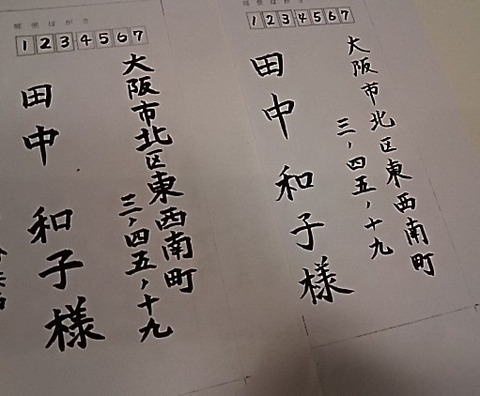 郵便はがき
1234567
大阪市北区東西南町
三、四五、十九
田中 和子様
郵便はがき
1234567
大阪市北区東西南町
三、四五、十九
田中 和子様